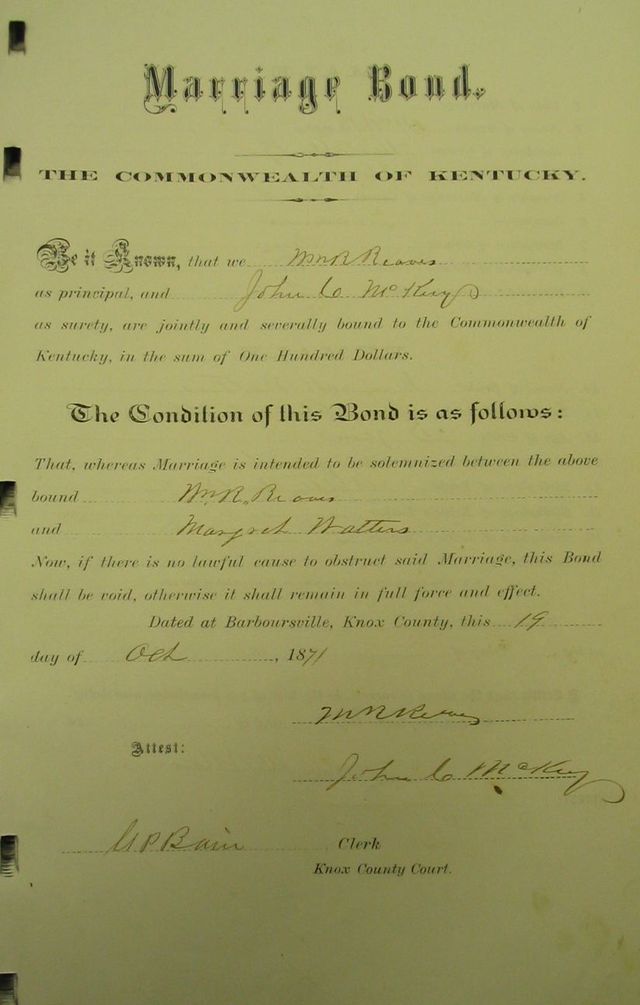 Marriage Bond.
THE COMMONWEALTH OF KENTUCKY.
Be it Known, that we Wm R Reaves
as principal, and John C McKey
as surety, are jointly and severally bound to the Commonwealth of
Kentucky, in the sum of One Hundred Dollars.
The Condition of this Bond is as follows:
That, whereas Marriage is intended to be solemnized between the above
bound Wm R. Reaves
and Margret Watters
Now, if there is no lawful cause to obstruct said Marriage, this Bond
shall be void, otherwise it shall remain in full force and effect.
Dated at Barboursville, Knox County, this 19
day of Oct, 1871
W R Reaves
Attest:
John C McKey
Bain Clerk
Knox County Court.